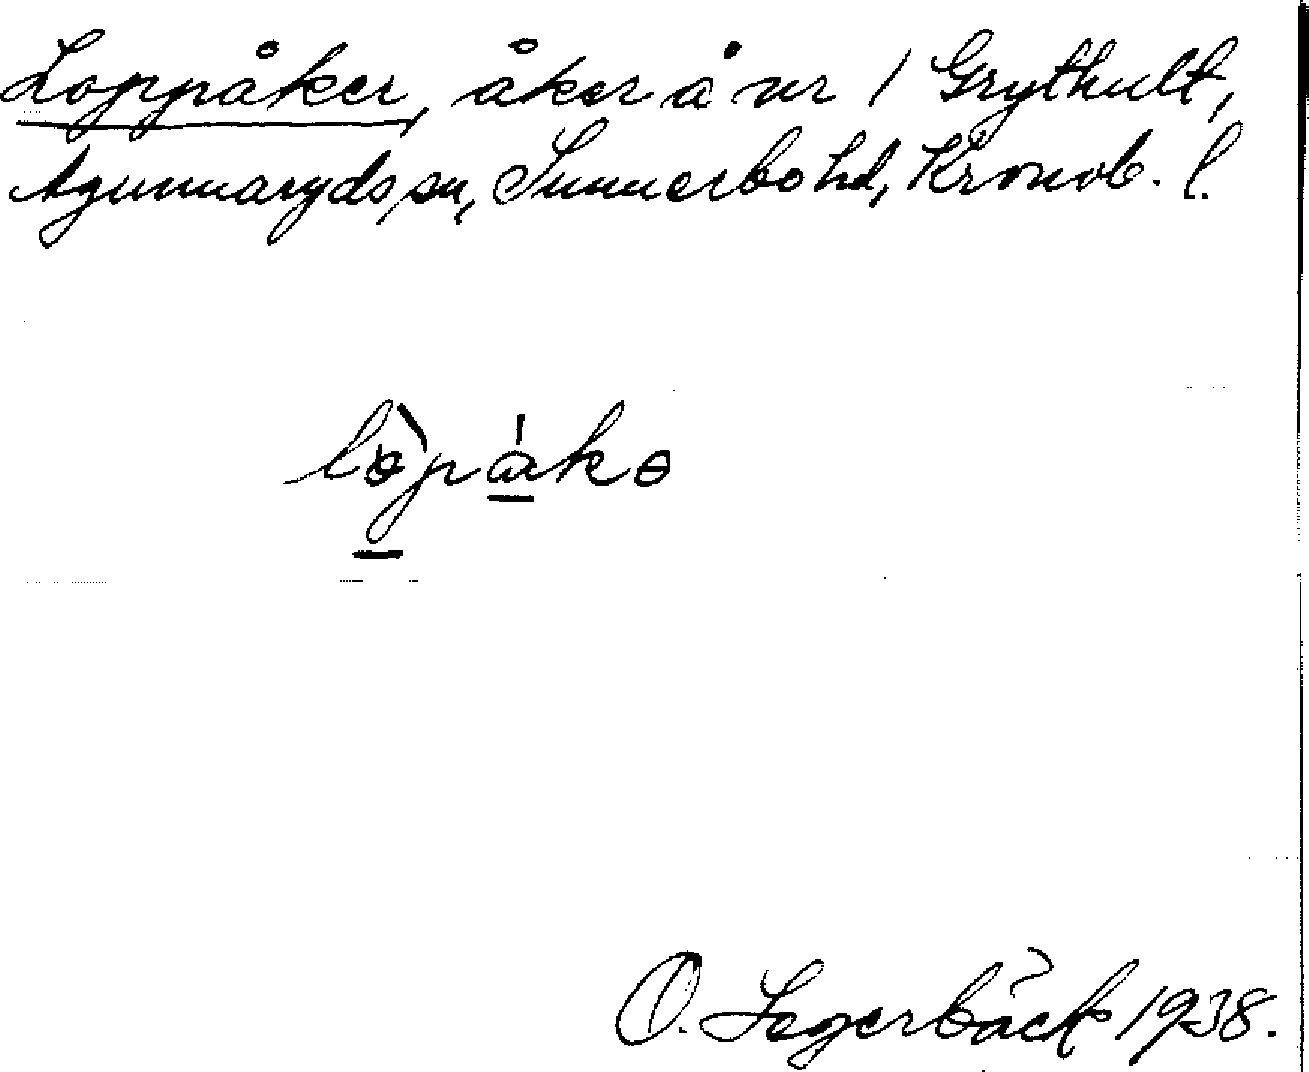 Loppåker, åker å nr 1 Grythult,
Agunnaryds sn, Sunnerbo hd, Kronob. l.
lòpákɵ
O. Segerbäck 1938.